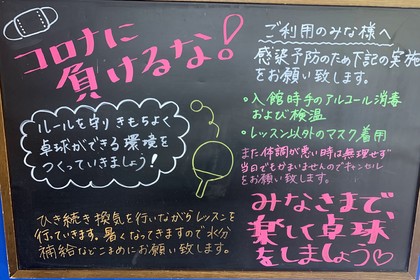 コロナに
負けるな!
ルールを守りきもちよく
卓球ができる環境を
つくっていきましょう!
ひき続き換気を行いながらレッスンを
行っていきます。暑くなってきますので水分
補給などこまめにお願い致します。
ご利用のみな様へ
感染予防のため下記の実施
をお願い致します。
・入館時手のアルコール消毒
および検温
・レッスン以外のマスク着用
また体調が悪い時は無理せず
当日でもかまいませんのでキャンセル
をお願い致します。
みなさまで、
楽しい卓球
をしましょう♡